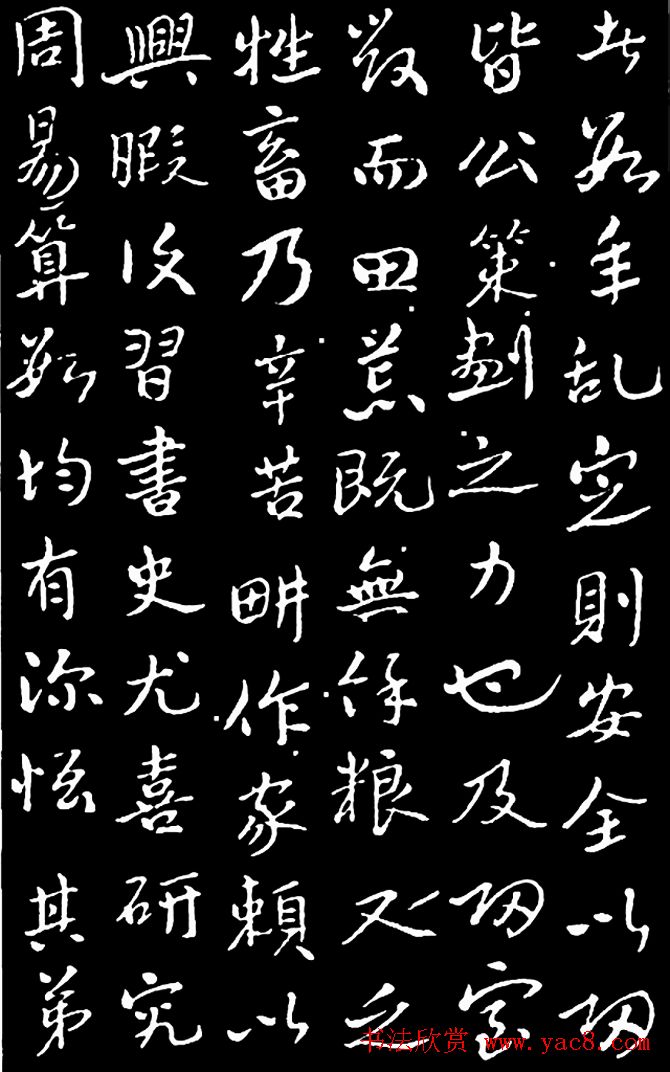 者数年乱定則安全以归
皆公策劃之力也及归室
毀而田荒既無餘粮又乏
牲畜乃辛苦畊作家賴以
興暇復習書史尤喜研究
周易算数均有深悟其弟
书法欣赏 www.yac8.com